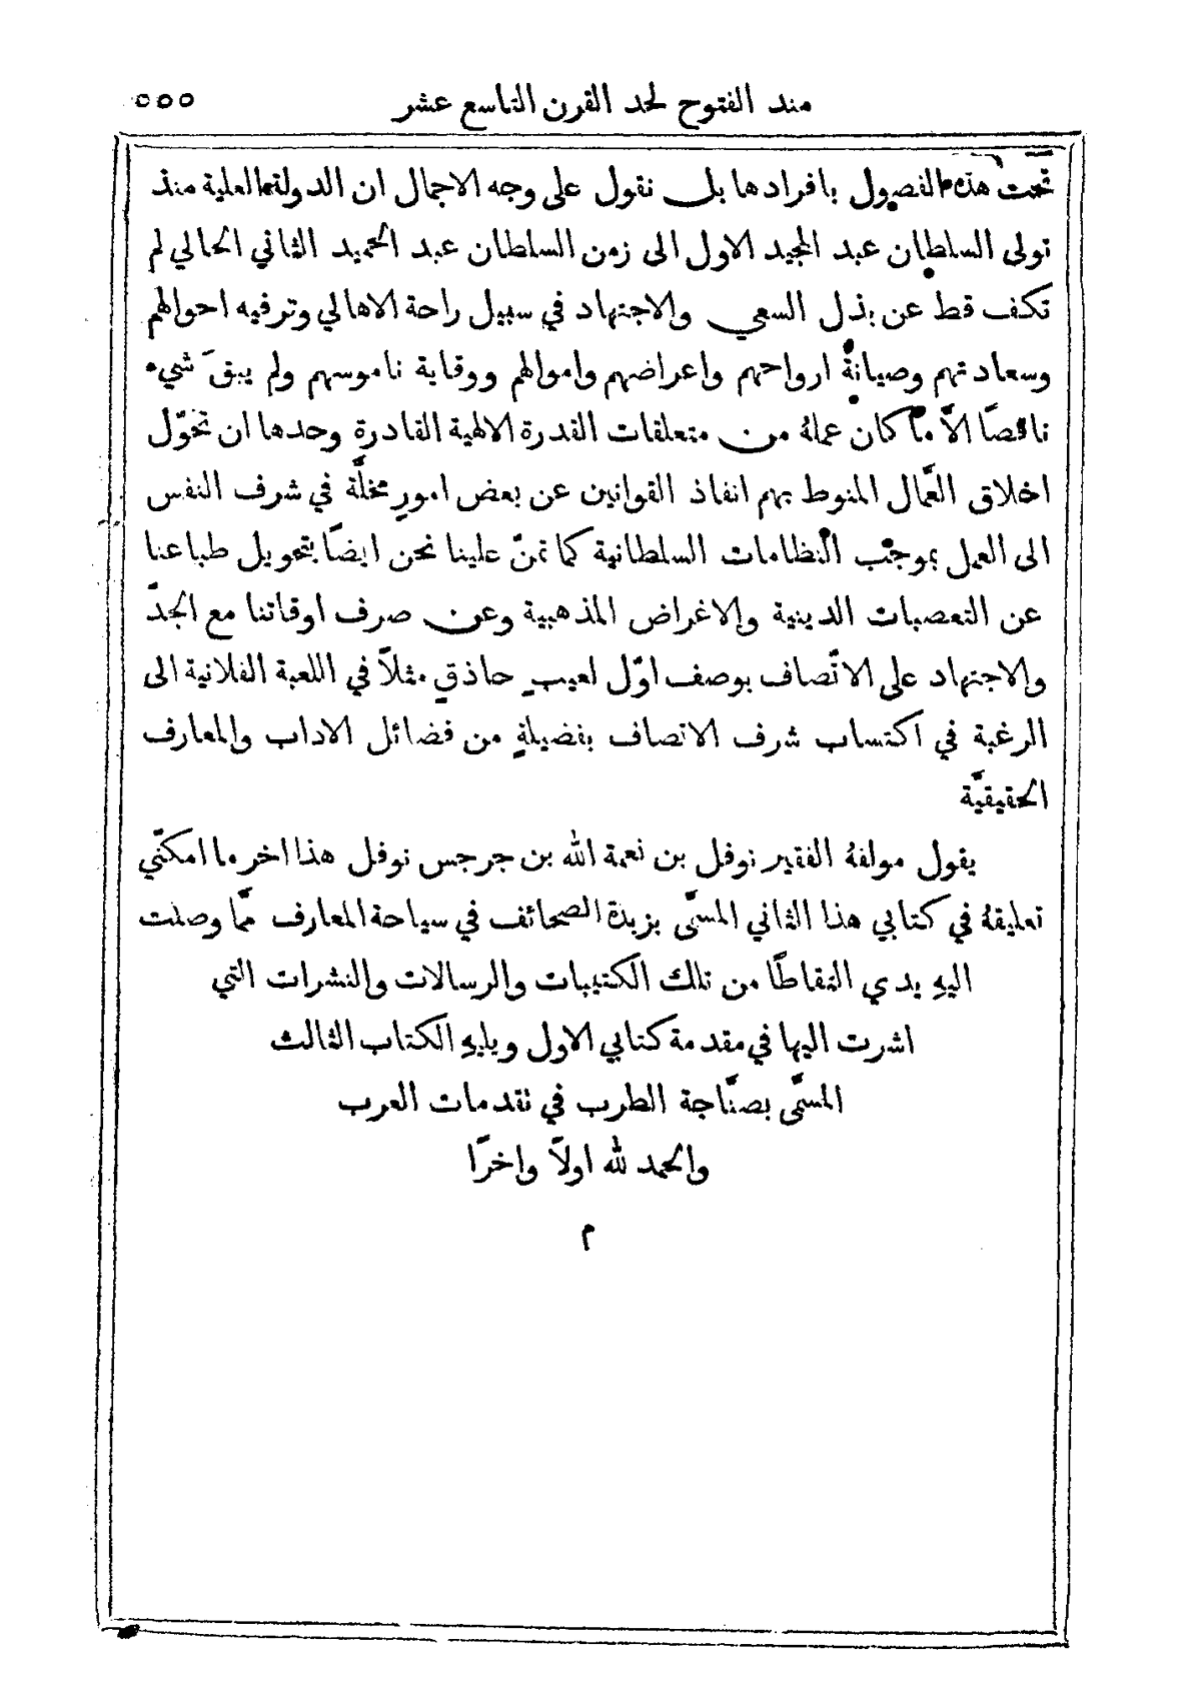 منذ الفتوح لحد القرن التاسع عشر ٥٥٥
تحت هذه الفصول بافرادها بل نقول على وجه الاجمال ان الدولة العلية منذ
تولى السلطان عبد المجيد الاول الى زمن السلطان عبد الحميد الثاني الحالي لم
تكف قط عن بذل السعي والاجتهاد في سبيل راحة الاهالي وترفيه احوالهم
وسعادتهم وصيانة ارواحهم واعراضهم واموالهم ووقاية ناموسهم ولم يبقَ شيء
ناقصًا الَّا ما كان عملهُ من متعلقات القدرة الالهية القادرة وحدها ان تحوّل
اخلاق العُمال المنوط بهم انفاذ القوانين عن بعض امورٍ مخلَّة في شرف النفس
الى العمل بموجب النظامات السلطانية كما تمنّ علينا نحن ايضًا بتحويل طباعنا
عن التعصبات الدينية والاغراض المذهبية وعن صرف اوقاتنا مع الجدّ
والاجتهاد على الاتّصاف بوصف اوّل لعيبٍ حاذقٍ مثلاً في اللعبة الفلانية الى
الرغبة في اكتساب شرف الاتصاف بفضيلةٍ من فضائل الاداب والمعارف
الحقيقيَّة
يقول مولفهُ الفقير نوفل بن نعمة الله بن جرجس نوفل هذا اخر ما امكنّي
تعليقهُ في كتابي هذا الثاني المسمَّى بزبدة الصحائف في سياحة المعارف ممَّا وصلت
اليهِ يدي التقاطًا من تلك الكتيبات والرسالات والنشرات التي
اشرت اليها في مقدمة كتابي الاول ويليهِ الكتاب الثالث
المسمَّى بصنَّاجة الطرب في تقدمات العرب
والحمد لله اولاً واخرًا
م